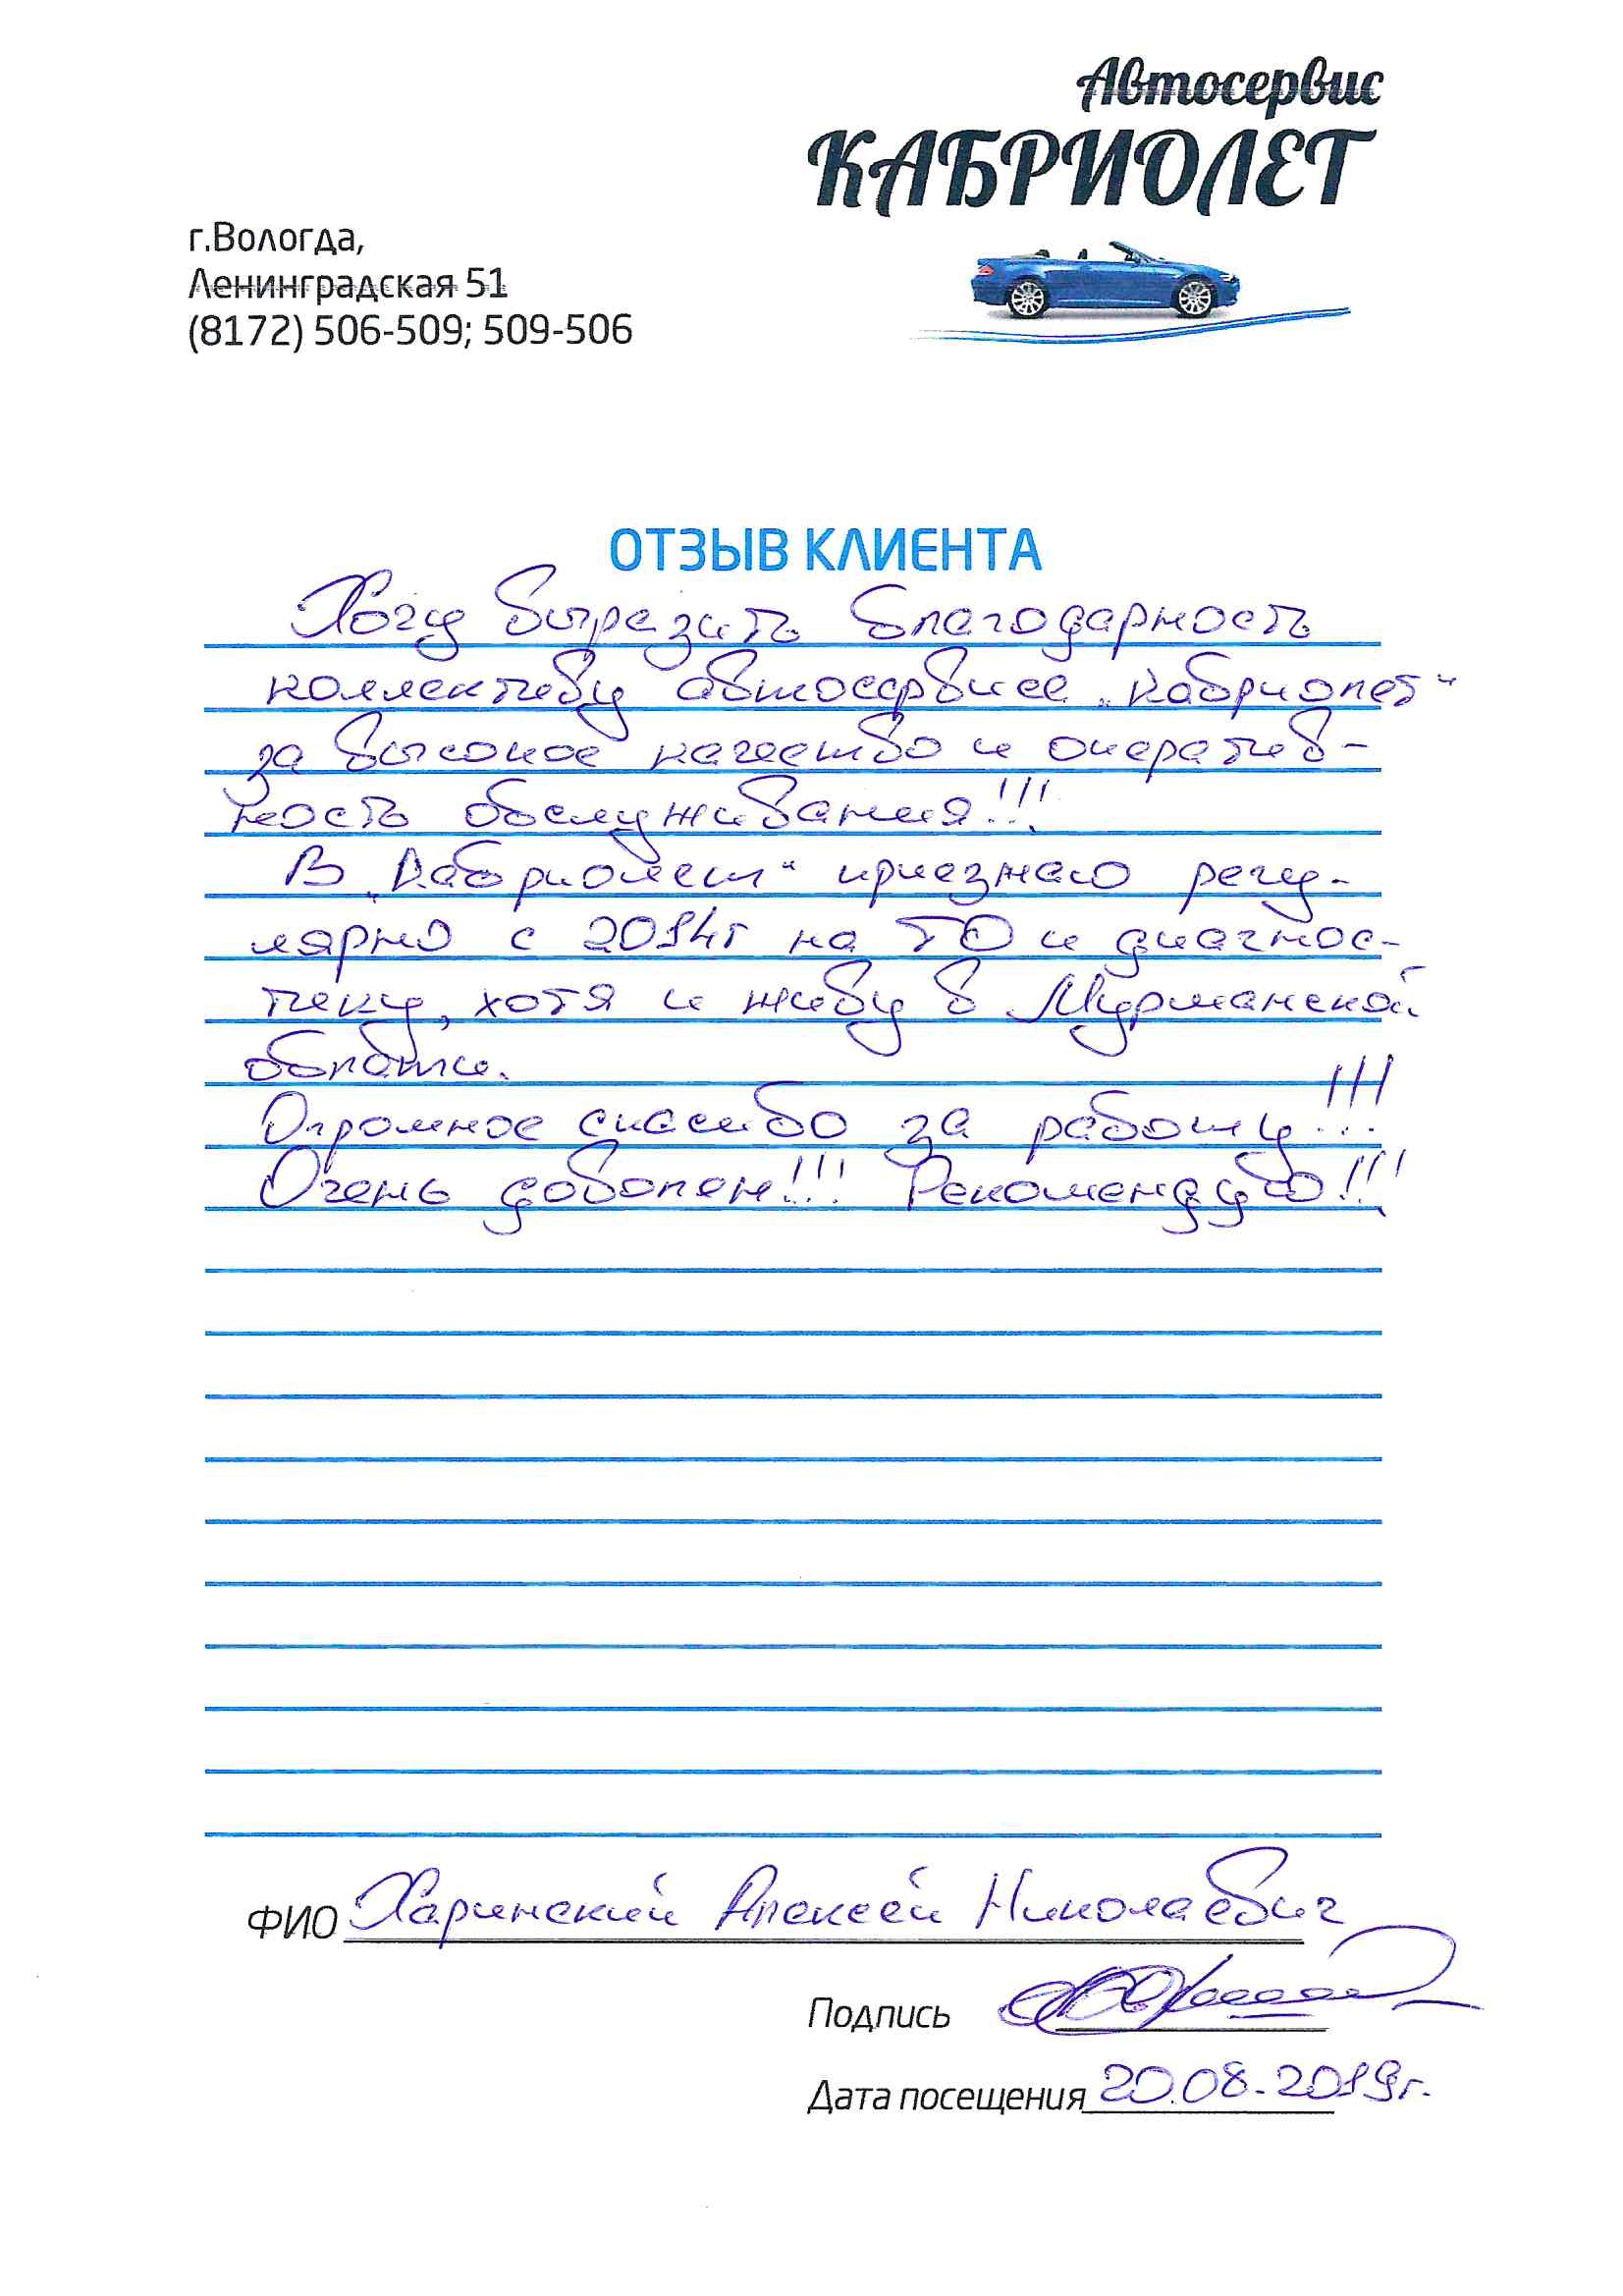 Автосервис
КАБРИОЛЕТ
г.Вологда,
Ленинградская 51
(8172) 506-509; 509-506
ОТЗЫВ КЛИЕНТА
Хочу выразить благодарность
коллективу автосервиса „Кабриолет“
за высокое качество и оператив-
ность обслуживания!!!
В „Кабриолет“ приезжаю регу-
лярно с 2014г на ТО и диагнос-
тику, хотя и живу в Мурманской
области.
Огромное спасибо за работу!!!
Очень доволен!!! Рекомендую!!!
ФИО Харинский Алексей Николаевич
Подпись
Дата посещения 20.08.2019г.